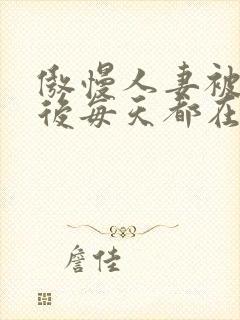 傲慢人妻被
后每天都在
詹佳